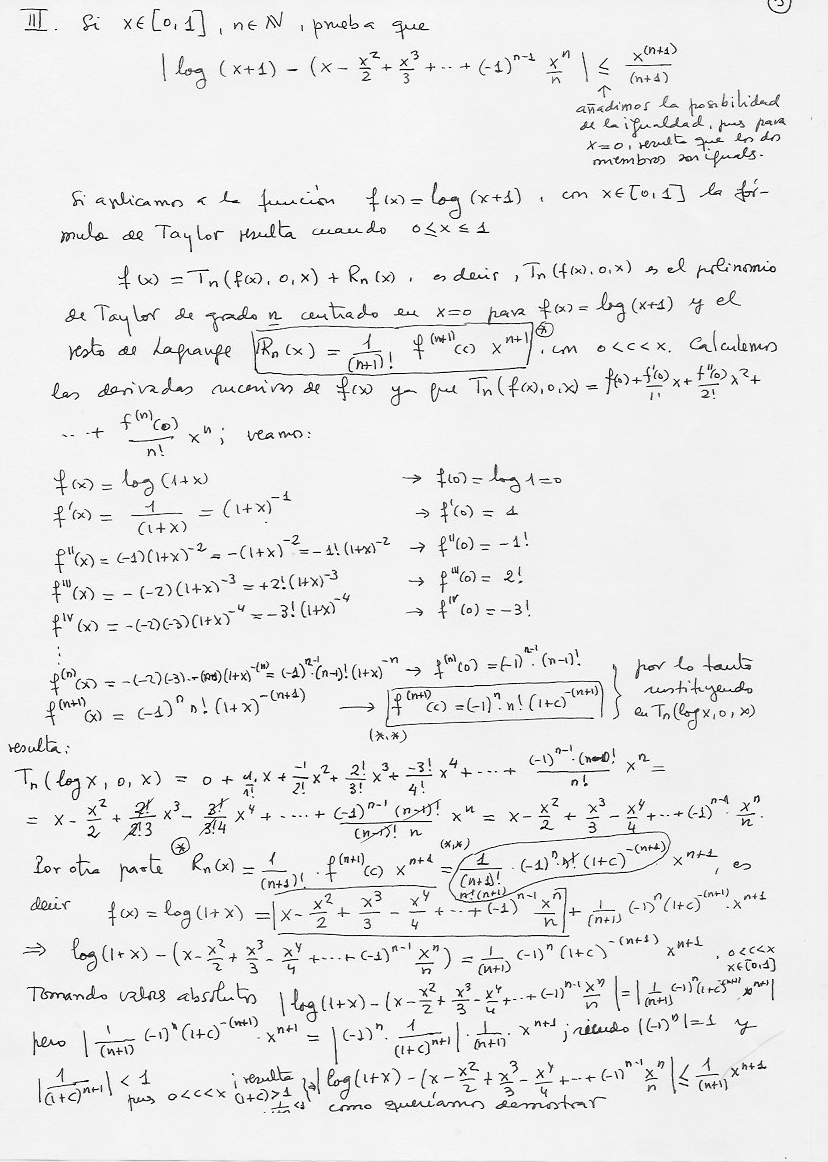 III. Si x∈[0,1], n∈N, prueba que
|log (x+1) - (x - x²/2 + x³/3 + ... + (-1)^(n-1) xⁿ/n)| ≤ x^(n+1)/(n+1)
↑
añadimos la posibilidad
de la igualdad, pues para
x=0, resulta que los dos
miembros son iguals.
Si aplicamos a la función f(x) = log (x+1), con x∈[0,1] la fór-
mula de Taylor resulta cuando 0≤x≤1
f(x) = Tn(f(x), 0, x) + Rn(x), es decir, Tn(f(x), 0, x) es el polinomio
de Taylor de grado n centrado en x=0 para f(x) = log(x+1) y el
resto de Lagrange Rn(x) = 1/(n+1)! f^(n+1)(c) x^(n+1) (*), con 0<c<x. Calculemos
las derivadas sucesivas de f(x) ya que Tn(f(x), 0, x) = f(0) + f'(0)/1! x + f''(0)/2! x² +
... + f^(n)(0)/n! xⁿ; veamos:
f(x) = log (1+x) → f(0) = log 1 = 0
f'(x) = 1/(1+x) = (1+x)^-1 → f'(0) = 1
f''(x) = (-1)(1+x)^-2 = -(1+x)^-2 = -1!(1+x)^-2 → f''(0) = -1!
f'''(x) = -(-2)(1+x)^-3 = +2!(1+x)^-3 → f'''(0) = 2!
f^IV(x) = -(-2)(-3)(1+x)^-4 = -3!(1+x)^-4 → f^IV(0) = -3!
⋮
f^(n)(x) = -(-2)(-3)... (1+x)^-(n) = (-1)^(n-1)·(n-1)!(1+x)^-n → f^(n)(0) = (-1)^(n-1)·(n-1)!
f^(n+1)(x) = (-1)^n n! (1+x)^-(n+1) → f^(n+1)(c) = (-1)^n·n!(1+c)^-(n+1)
(*,*)
} por lo tanto
sustituyendo
en Tn(log x, 0, x)
resulta:
Tn(log x, 0, x) = 0 + 1/1! x + -1/2! x² + 2!/3! x³ + -3!/4! x⁴ + ... + (-1)^(n-1)·(n-1)!/n! xⁿ =
= x - x²/2 + 2!/2!3 x³ - 3!/3!4 x⁴ + ... + (-1)^(n-1)(n-1)!/(n-1)! n xⁿ = x - x²/2 + x³/3 - x⁴/4 + ... + (-1)^(n-1) xⁿ/n.
Por otra parte (*) Rn(x) = 1/(n+1)! · f^(n+1)(c) x^(n+1) =(*,*) 1/(n+1)! · (-1)^n·n!(1+c)^-(n+1) x^(n+1), es
n!(n+1)
decir f(x) = log(1+x) = x - x²/2 + x³/3 - x⁴/4 + ... + (-1)^(n-1) xⁿ/n + 1/(n+1) (-1)^n (1+c)^-(n+1)·x^(n+1)
⇒ log(1+x) - (x - x²/2 + x³/3 - x⁴/4 + ... + (-1)^(n-1) xⁿ/n) = 1/(n+1) (-1)^n (1+c)^-(n+1) x^(n+1), 0<c<x
x∈[0,1]
Tomando valores absolutos |log(1+x) - (x - x²/2 + x³/3 - x⁴/4 + ... + (-1)^(n-1) xⁿ/n| = |1/(n+1) (-1)^n (1+c)^-(n+1) x^(n+1)|
pero |1/(n+1) (-1)^n (1+c)^-(n+1)·x^(n+1) = |(-1)^n · 1/(1+c)^(n+1)| · 1/(n+1) · x^(n+1); siendo |(-1)^n| = 1 y
|1/(1+c)^(n+1)| < 1 pues 0<c<x; resulta (1+c)>1
} ⇒ |log(1+x) - (x - x²/2 + x³/3 - x⁴/4 + ... + (-1)^(n-1) xⁿ/n| ≤ 1/(n+1) x^(n+1)
como queríamos demostrar